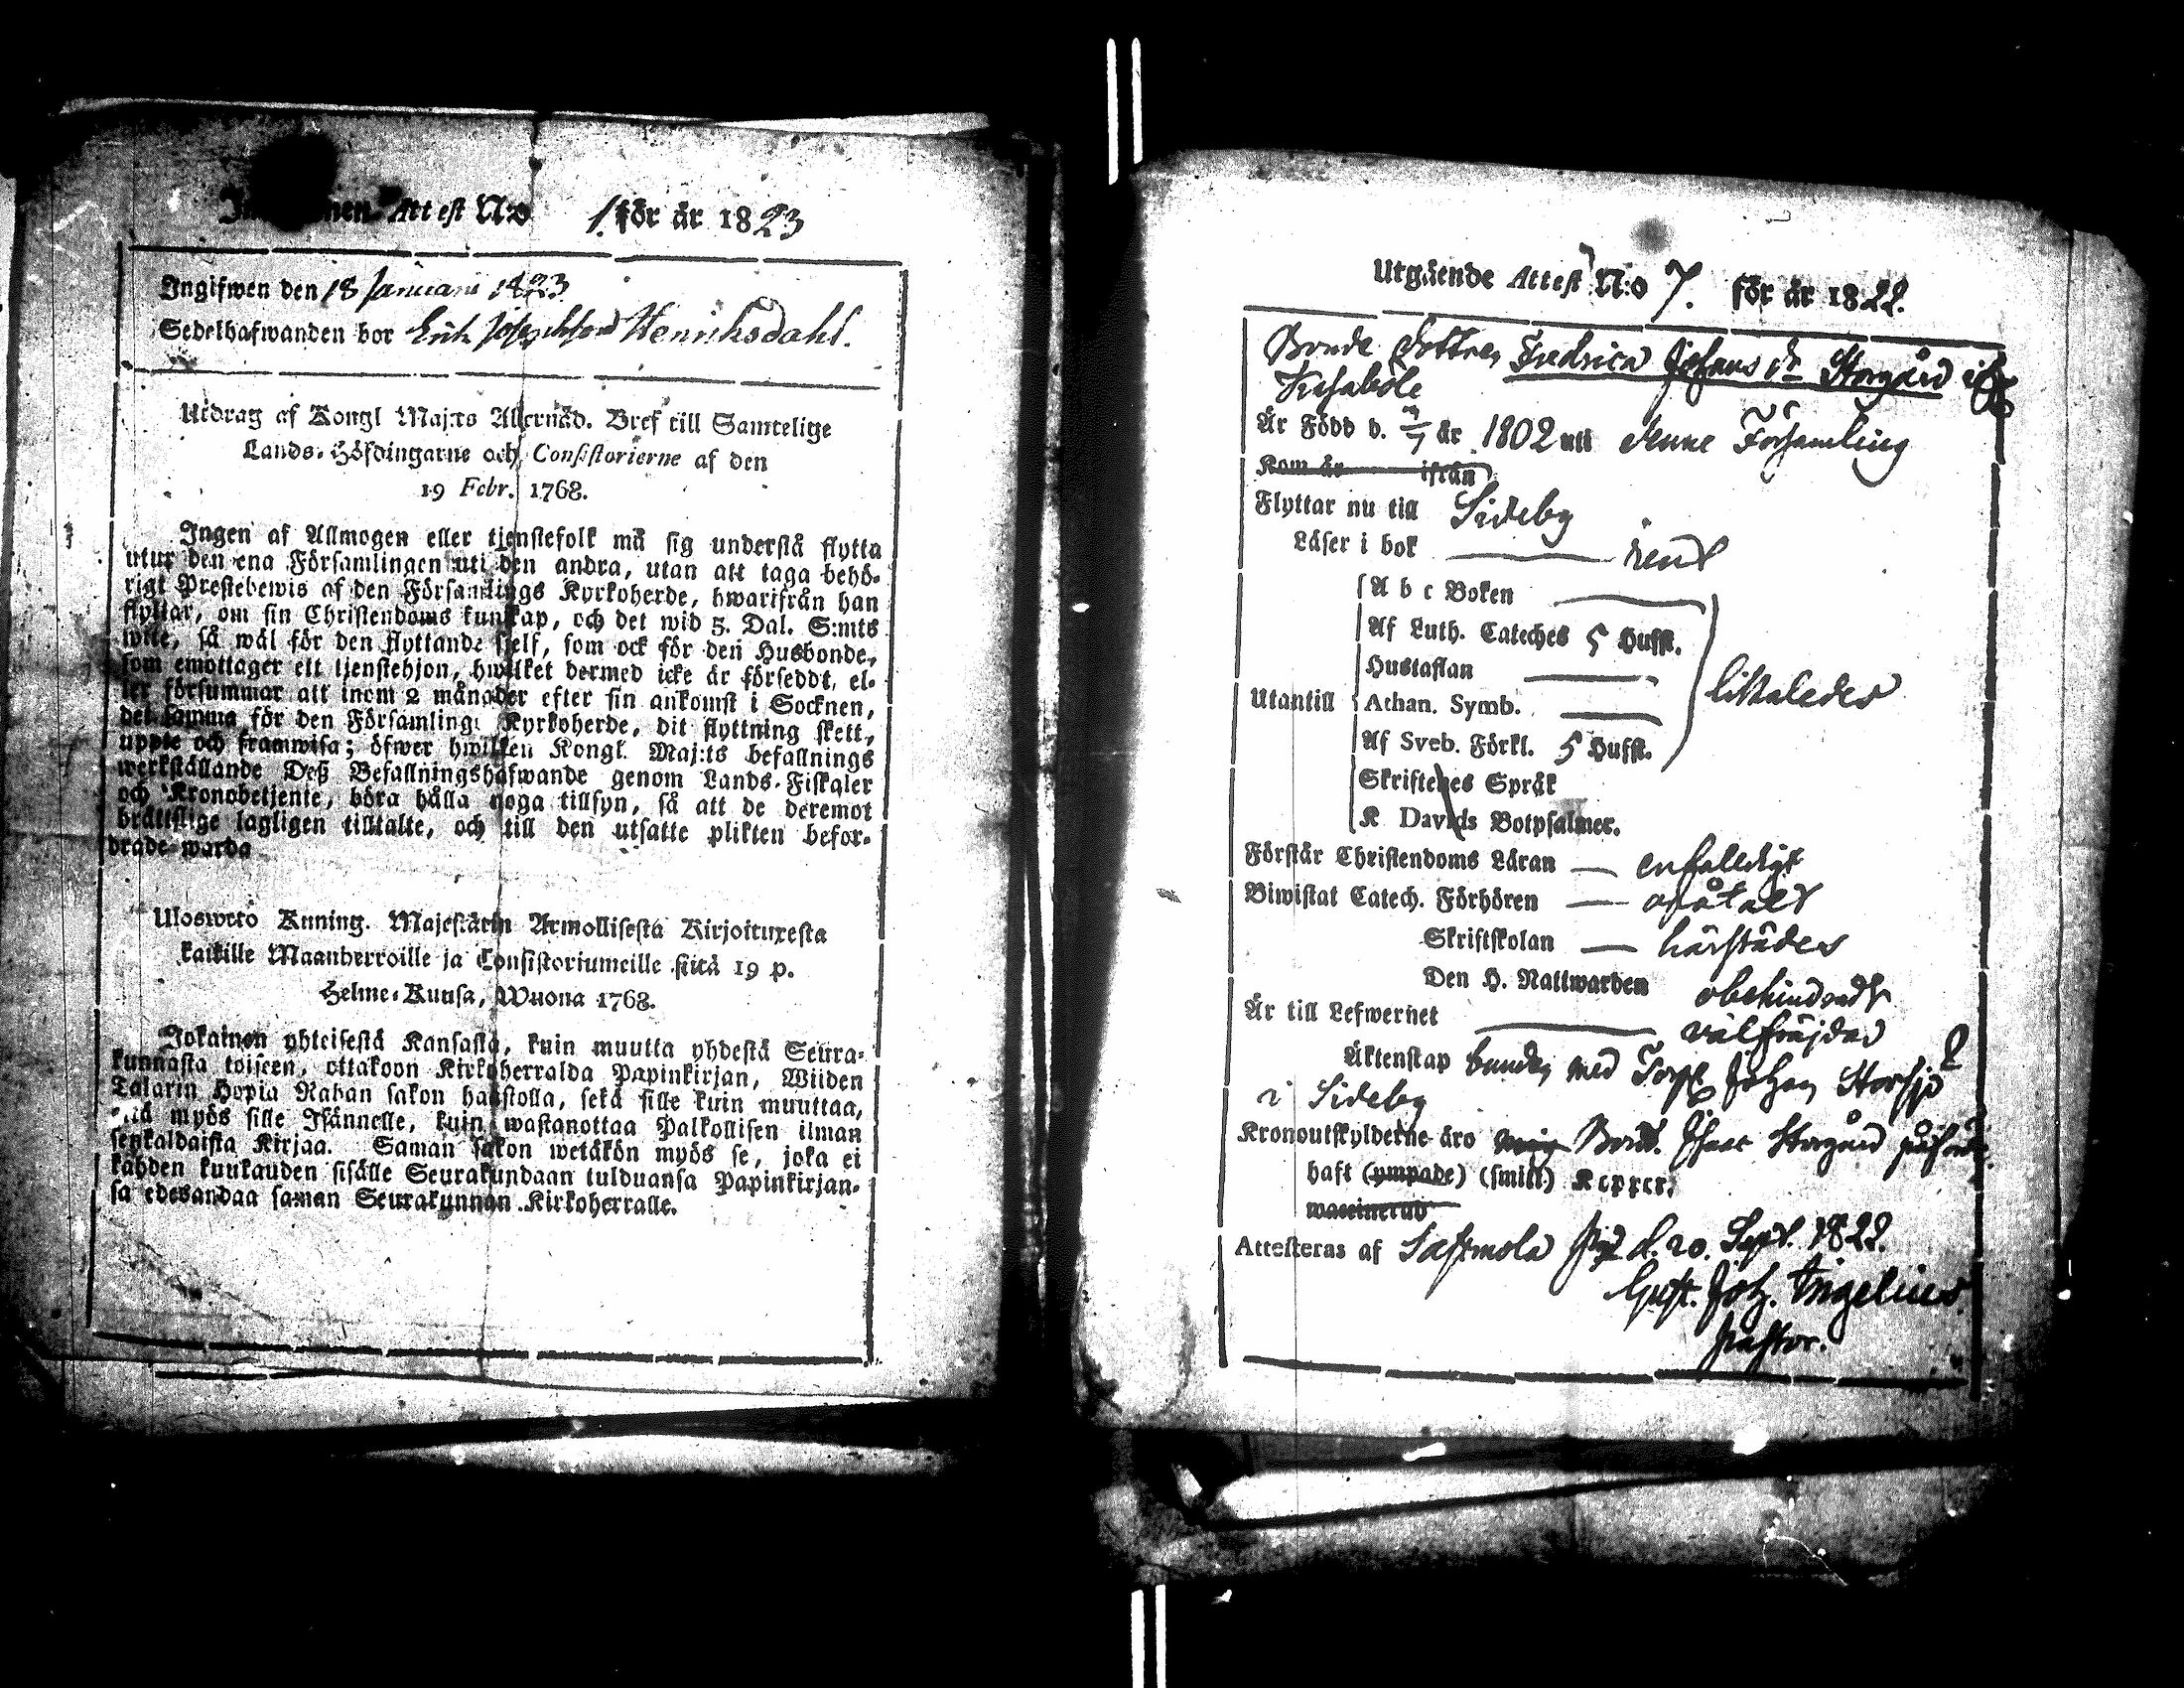 Attest N:o 1. för år 1823
Ingifwen den 18 Januarii 1823
Sedelhafwanden bor Henriksdahl.
Utdrag af Kongl Maj:ts Allernåd. Bref till Samtelige
Lands-Höfdingarne och Consistorierne af den
19 Febr. 1768.
Ingen af Allmogen eller tjenstefolk må sig understå flytta
utur den ena Församlingen uti den andra, utan att taga behö-
rigt Prestebewis af den Församlings Kyrkoherde, hwarifrån han
flyttar, om sin Christendoms kunskap, och det wid 5. Dal. S:mts
wite, så wäl för den flyttande sjelf, som ock för den Husbonde,
som emottager ett tjenstehjon, hwilket dermed icke är försedt, el-
ler försummar att inom 2 månader efter sin ankomst i Socknen,
det samma för den Församlings Kyrkoherde, dit flyttning skett,
uppte och framwisa; öfwer hwilken Kongl. Maj:ts befallnings
werkställande Deß Befallningshafwande genom Lands-Fiskaler
och Kronobetjente, böra hålla noga tillsyn, så att de deremot
brättslige lagligen tilltalte, och till den utsatte plikten befor-
drade warda
Uloswето Kuning. Majestätin Armollisesta Kirjoituxesta
kaikille Maanherroille ja Consistoriumeille siitä 19 p.
Helme-Kuusa, Wuona 1768.
Jokainen yhteisestä Kansasta, kuin muutta yhdestä Seura-
kunnasta toiseen, ottakoon Kirkoherralda Papinkirjan, Wiiden
Talarin Hopia Rahan sakon haastolla, sekä sille kuin muuttaa,
että myös sille Isännelle, kuin wastanottaa Palkollisen ilman
senkaldaista Kirjaa. Saman sakon wetäkön myös se, joka ei
kahden kuukauden sisälle Seurakundaan tulduansa Papinkirjan-
sa edesandaa saman Seurakunnan Kirkoherralle.
Utgående Attest N:o 7. för år 1822.
Bonde Dottren Fredrica Johans dr Storgård
Är Född d. år 1802 uti denne Församling
Kom år ifrån
Flyttar nu till Sideby
Läser i bok rent
A b c Boken
Af Luth. Cateches 5 Hufst.
Hustaflan
Utantill Athan. Symb. likaledes
Af Sveb. Förkl. 5 Hufst.
Skriftenes Språk
K Davids Botpsalmer.
Förstår Christendoms Läran enfaldigt
Biwistat Catech. Förhören oftåtalt
Skriftskolan härstädes
Den H. Nattwarden obehindradt
Är till Lefwernet välfräjdad
Äktenskap bunden med Torp. Johan Storsjö
i Sideby
Kronoutskylderne äro Bond. Isaac Storgård
haft (ympade) (smitt.) Kopper.
waccinerud
Attesteras af Sastmola d. 20. Sept. 1822.
Gust. Joh. Tingelius
Pastor.